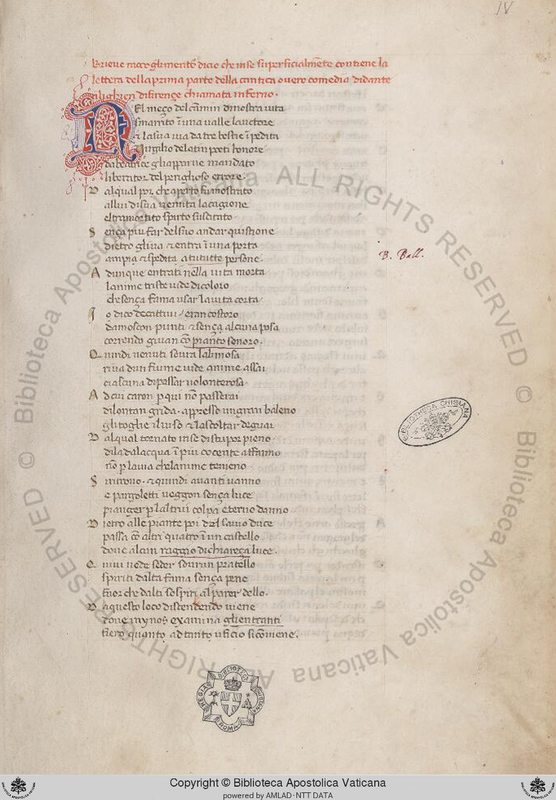 IV
Brieve raccoglimento di ciò che in sé superficialmente contiene la
lettera della prima parte della cantica overo comedia di dante
alighieri di firençe chiamata inferno.
Nel meço del camin di nostra vita
smarrito ĩ una valle lauctore
& la sua via da tre bestie ĩpedita
Virgilio de latin poeti honore
da beatrice gliapparve mandato
liberator del periglioso errore
D al qual poi che aperto fu mostrato
allui di sua venuta la cagione
el tramortito spirto suscitato
S ença piu far del suo andar quistione
dietro gliva & entra ĩ una porta
ampia & spedita a tutte persone.
A dunque entrati nella vita morta
lanime triste vide di coloro
che sença fama usar la vita corta.
I o dico de cattivi. eran costoro
da moscon punti & sença alcuna posa
correndo givan cõ pianto sonoro.
Q uindi venuti sovra
riva dun fiume vide anime assai
ciascuna di passar volonterosa.
A cui caron p qui nõ passerai
di lontan grida. appresso un gran baleno
gli toglie il viso & lascoltar de guai.
D al qual tornato in se di stupor pieno
di la da lacqua ĩ piu cocente affanno
nõ p la via che lanime
S mirono. & quindi avanti vanno
e pargoletti veggon sença luce
pianger p laltrui colpa eterno danno
D ietro alle piante poi del savio duce
passa cõ altri quatro ĩ un castello
dove alcun raggio di chiareça luce.
Q uivi vede seder sovrun pratello
spiriti dalta fama sença pene
fuor che dalti sospiri al parer dello.
D a questo loco discendendo viene
dove mynos examina gli entranti
fiero quanto ad tanto uficio si cõviene.
B. Ball.
BIBLIOTHECA CHISIANA
© Biblioteca Apostolica Vaticana ALL RIGHTS RESERVED
© Biblioteca Apostolica Vaticana ALL RIGHTS RESERVED
Copyright © Biblioteca Apostolica Vaticana
powered by AMLAD·NTT DATA